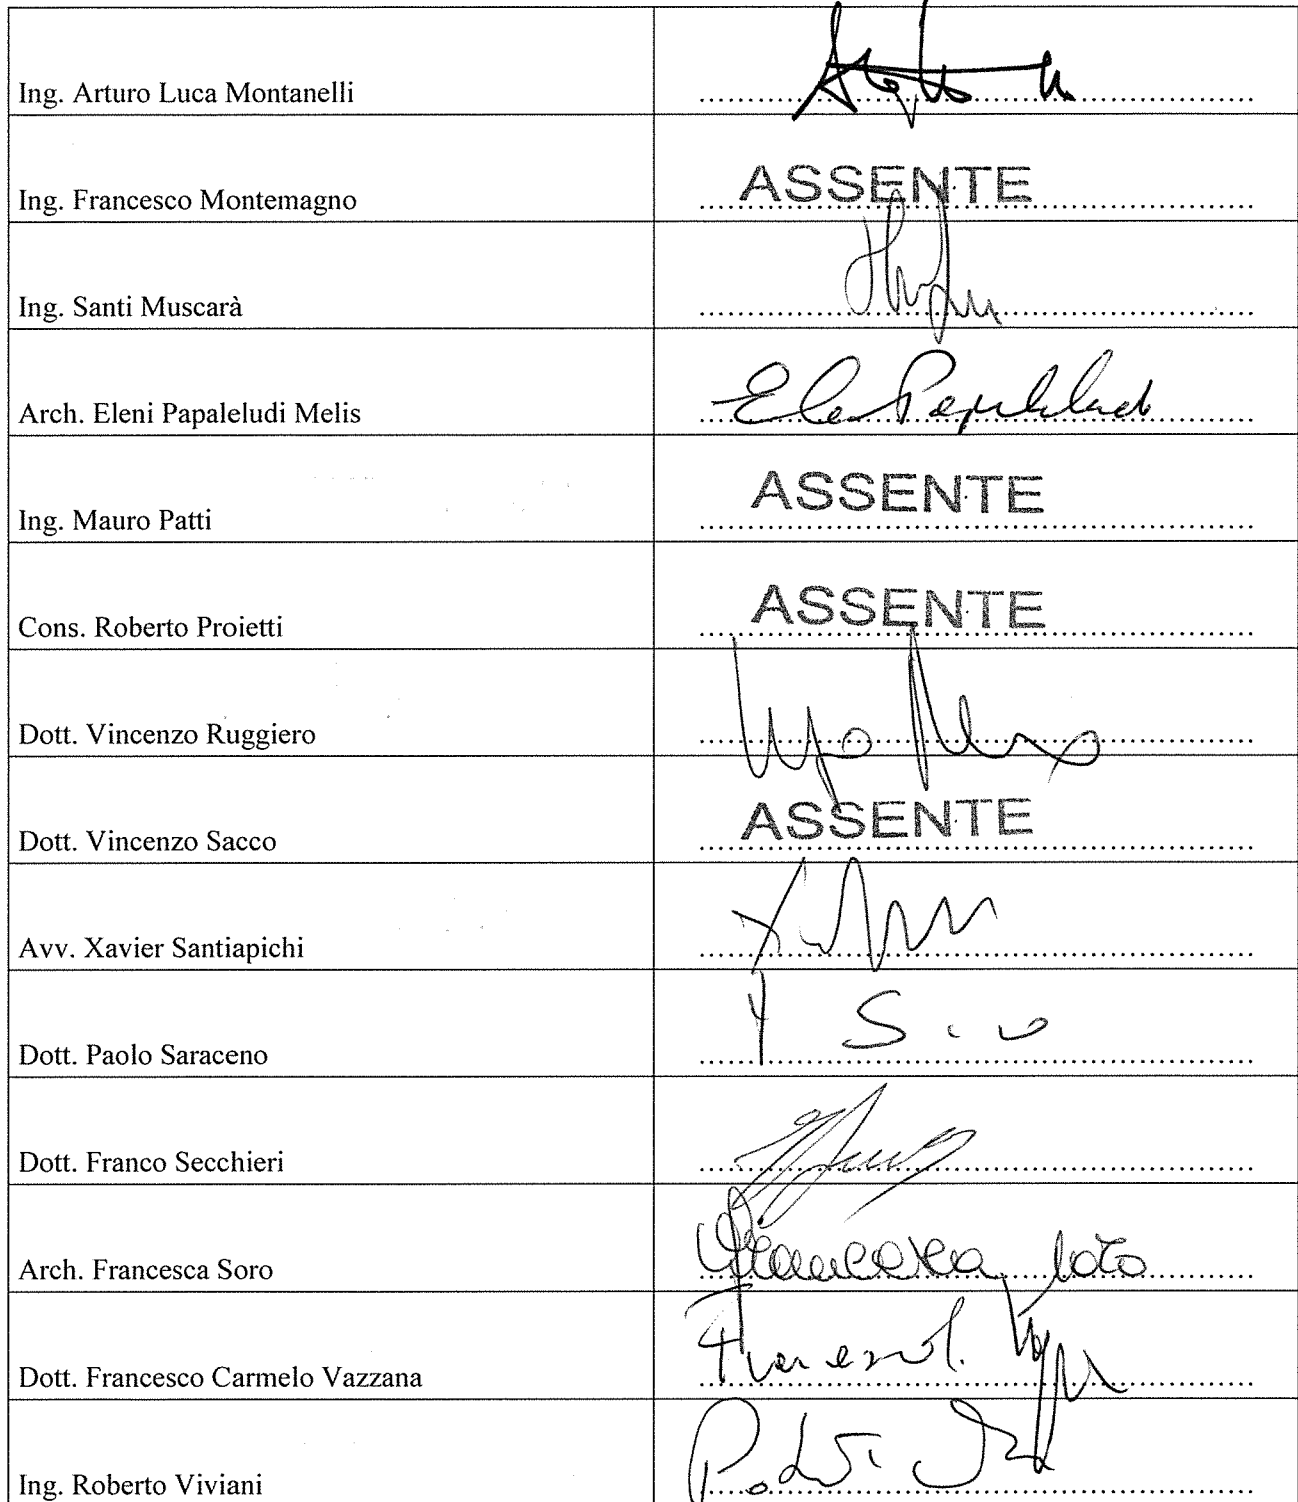 Ing. Arturo Luca Montanelli
Ing. Francesco Montemagno ASSENTE
Ing. Santi Muscarà
Arch. Eleni Papaleludi Melis
Ing. Mauro Patti ASSENTE
Cons. Roberto Proietti ASSENTE
Dott. Vincenzo Ruggiero
Dott. Vincenzo Sacco ASSENTE
Avv. Xavier Santiapichi
Dott. Paolo Saraceno
Dott. Franco Secchieri
Arch. Francesca Soro Francesca Soro
Dott. Francesco Carmelo Vazzana
Ing. Roberto Viviani